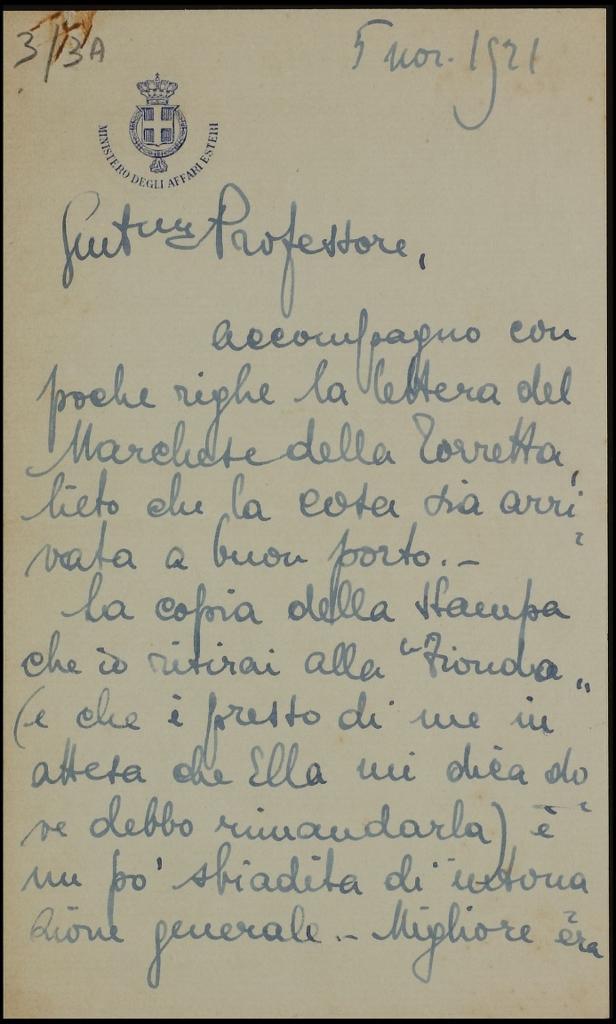 3/3A
5 nov. 1921
MINISTERO DEGLI AFFARI ESTERI
Professore,
accompagno con
poche righe la lettera del
Marchese della Torretta,
lieto che la cosa sia arri
vata a buon porto. –
La copia della stampa
che io ritirai alla "Fionda"
(e che è presso di me in
attesa che Ella mi dica do
ve debbo rimandarla) è
un po' sbiadita di intona
zione generale. – Migliore era